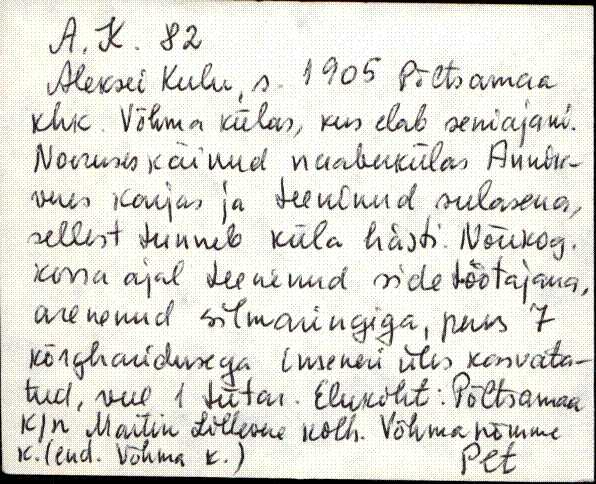 A. K. 82
Aleksei Kulu, s. 1905 Põltsamaa
khk. Võhma külas, kus elab seniajani.
Nooruses käinud naaberkülas Annik-
veres karjas ja teeninud sulasena,
sellest tunneb küla hästi. Nõukog.
korra ajal teeninud side töötajana,
arenenud silmaringiga, peres 7
kõrgharidusega inseneri üles kasvata-
tud, veel 1 tütar. Elukoht: Põltsamaa
k/n Martin Lillevere kolh. Võhmanõmme
k. (end. Võhma k.) Plt